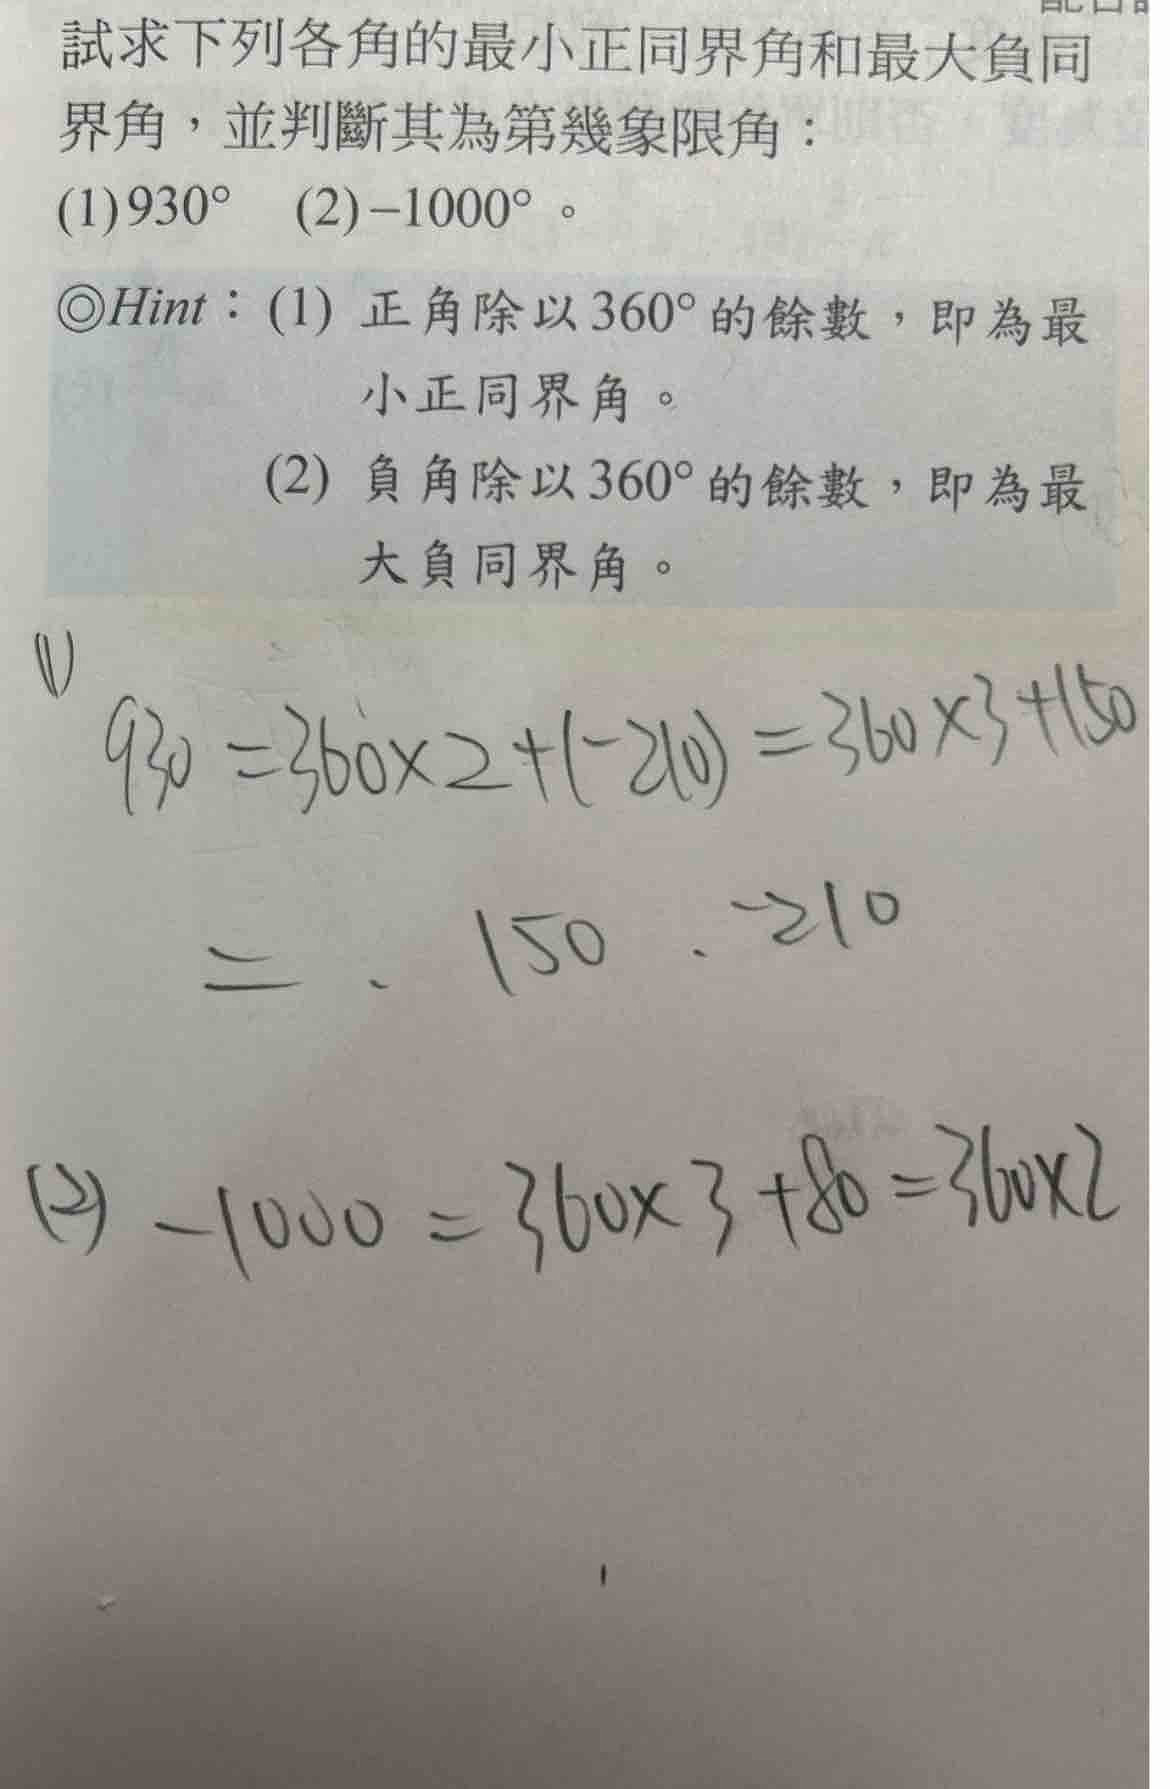 試求下列各角的最小正同界角和最大負同
界角，並判斷其為第幾象限角：
(1)930° (2)–1000°。
◎Hint：(1) 正角除以360°的餘數，即為最
小正同界角。
(2) 負角除以360°的餘數，即為最
大負同界角。
(1)
930 = 360×2+(-210) = 360×3+150
= . 150 . -210
(2) -1000 = 360×3+80 = 360×2